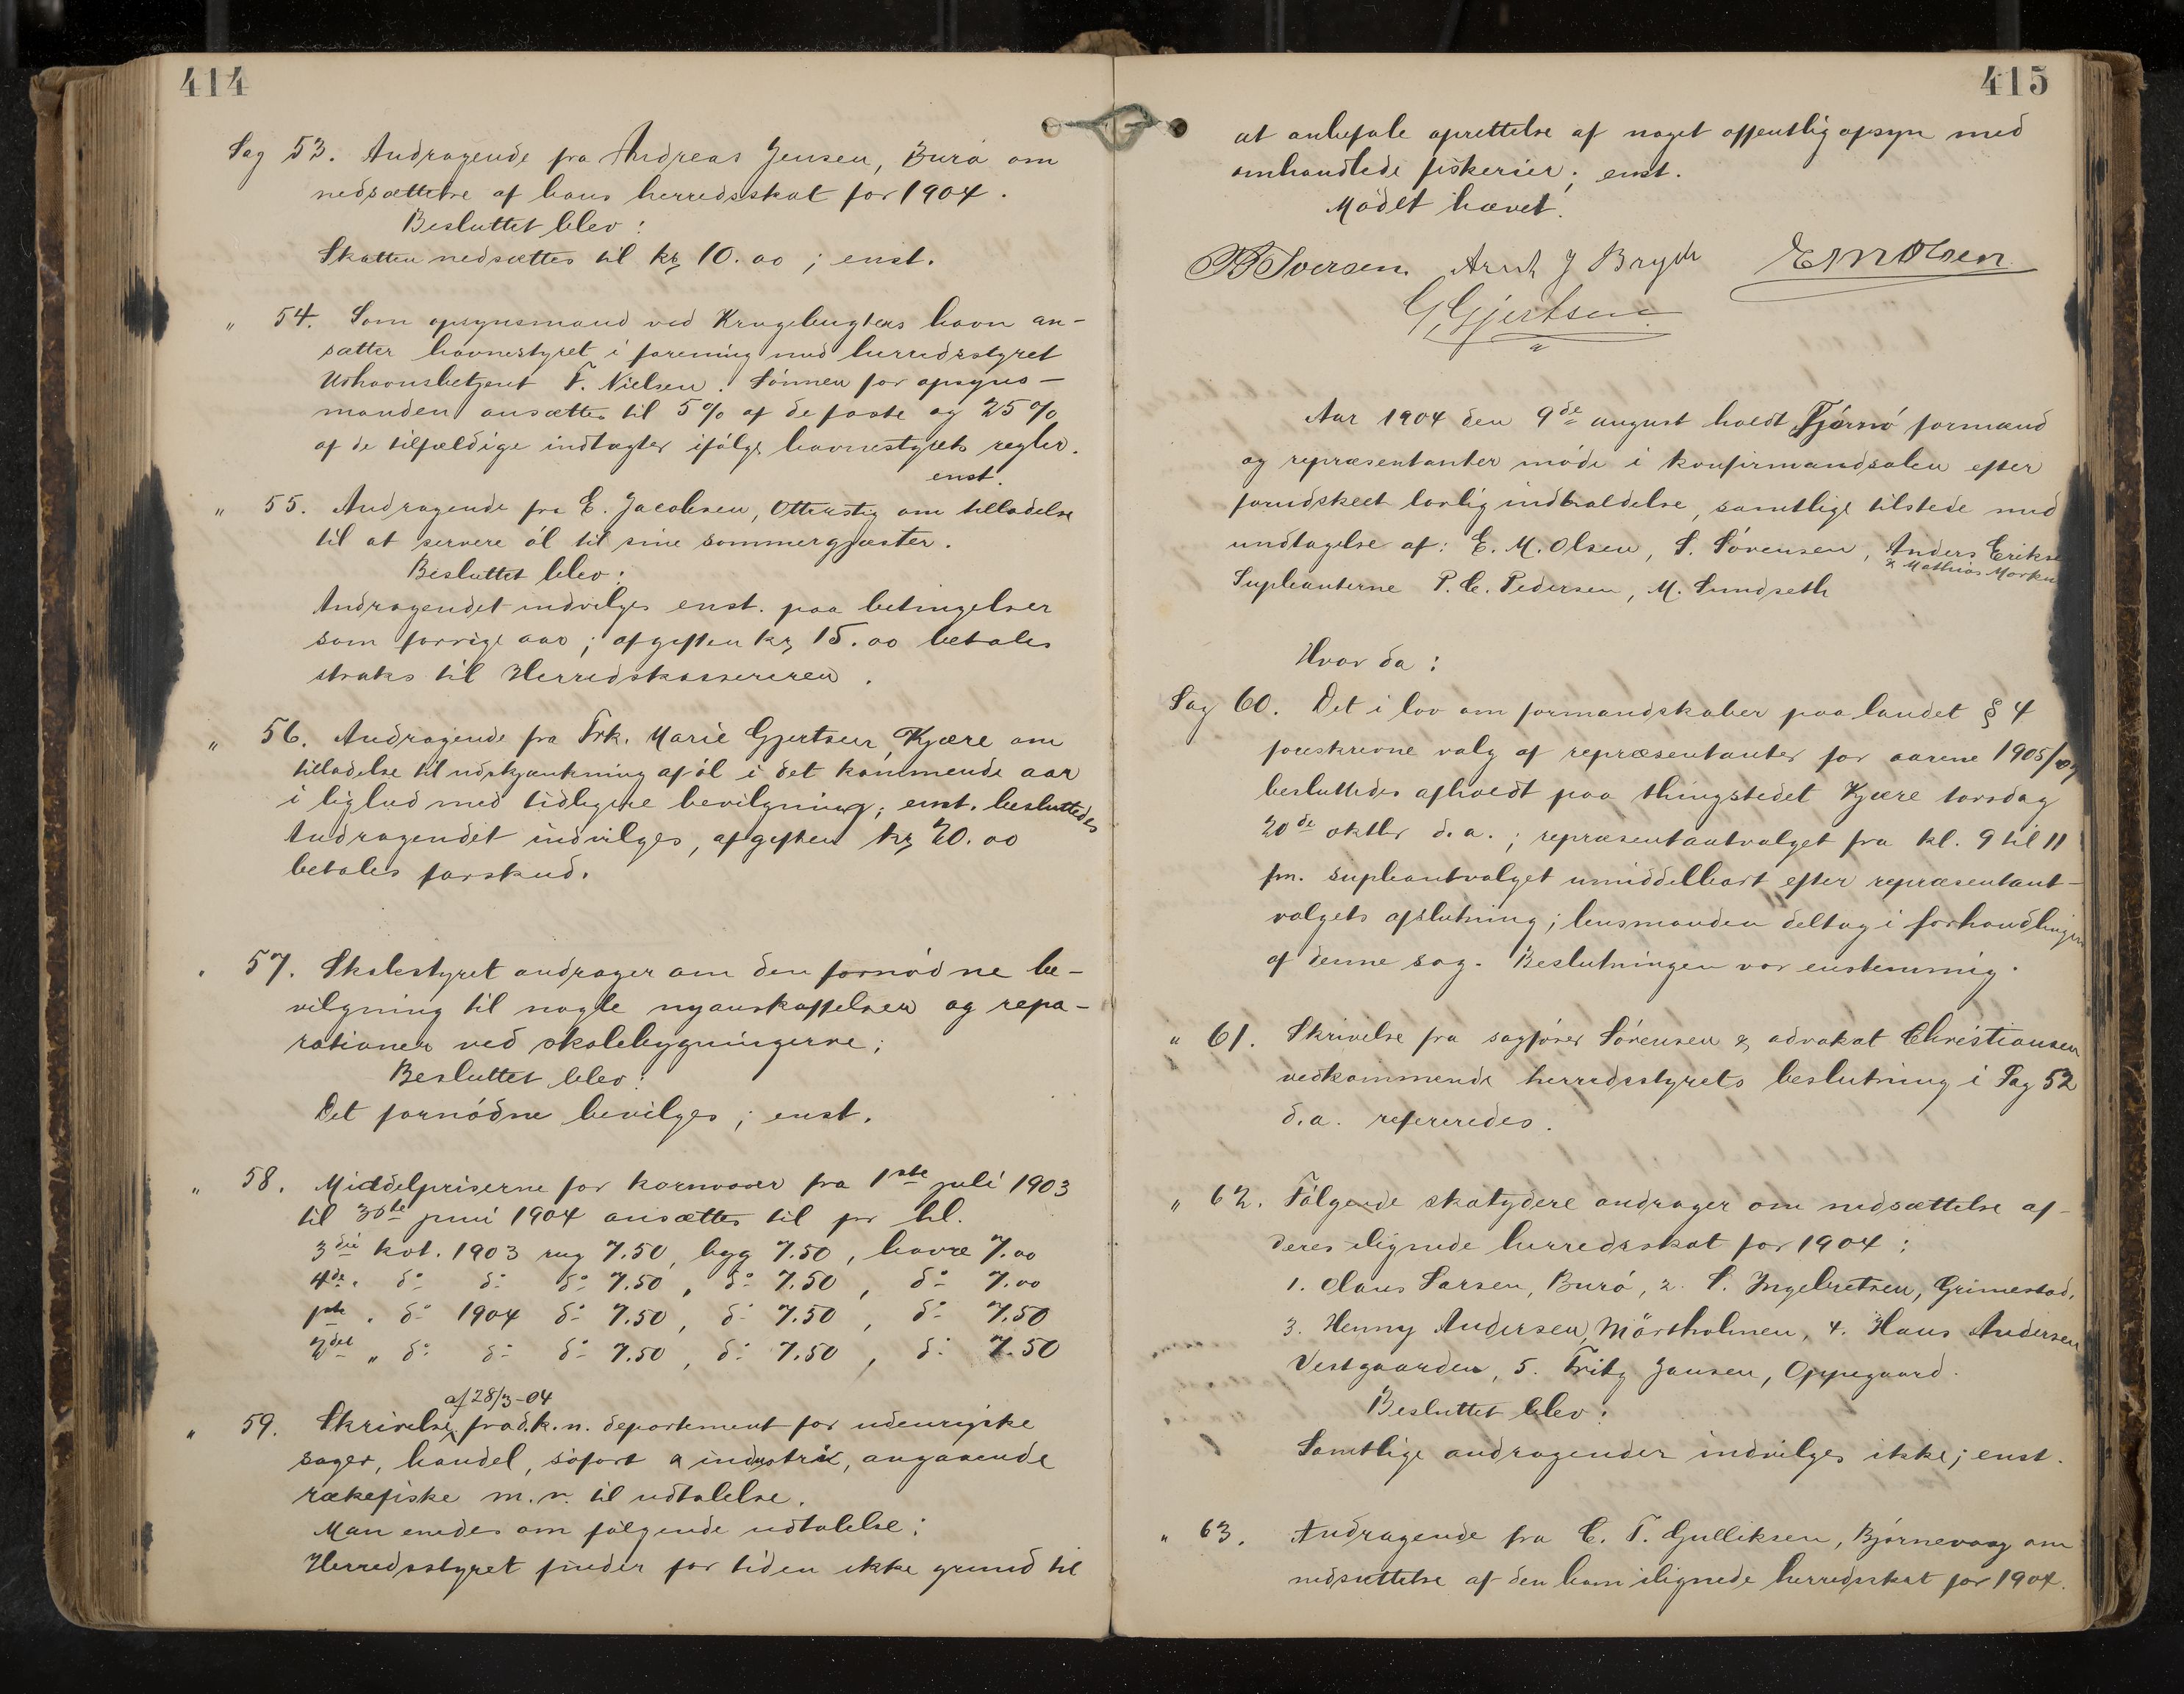 414
Sag 53. Andragende fra Andreas Jensen, Burö om
nedsættelse af hans herredsskat for 1904.
Besluttet blev:
Skatten nedsættes til kr 10.00; enst.
" 54. Som opsynsmand ved Krugebugtens havn an-
sætter havnestyret i forening med herredsstyret
Udhavnsbetjent F. Nielsen. Lönnen for opsyns-
manden ansættes til 5% af de faste og 25%
af de tilfældige indtægter ifölge havnestyrets regler.
enst.
" 55. Andragende fra E. Jacobsen, Otterstig om tilladelse
til at servere öl til sine sommergjæster.
Besluttet blev:
Andragendet indvilges enst. paa betingelser
som forrige aar; afgiften kr 15.00 betales
straks til Herredskassereren.
" 56. Andragende fra Frk. Marie Gjertsen, Kjære om
tilladelse til udskjænkning af öl i det kommende aar
i lighed med tidligere bevilgning; enst. besluttedes
Andragendet indvilges, afgiften kr 20.00
betales forskud.
" 57. Skolestyret andrager om den fornödne be-
vilgning til nogle nyanskaffelser og repa-
rationer ved skolebygningerne;
Besluttet blev:
Det fornödne bevilges; enst.
" 58. Middelpriserne for kornvarer fra 1ste juli 1903
til 30te juni 1904 ansættes til pr hl.
3die kvt. 1903 rug 7.50, byg 7.50, havre 7.00
4de " do do do 7.50, do 7.50, do 7.00
1ste " do 1904 do 7.50, do 7.50, do 7.50
2det " do do do 7.50, do 7.50, do 7.50
af 28/3-04
" 59. Skrivelse fra d.k.n. departement for udenrigske
sager, handel, söfart & industri, angaaende
rækefiske m.v. til udtalelse.
Man enedes om fölgende udtalelse:
Herredsstyret finder for tiden ikke grund til
415
at anbefale oprettelse af noget offentlig opsyn med
omhandlede fiskerier; enst.
Mödet hævet.
B Iversen. Arnt J Bryde E M Olsen
G. Gjertsen
Aar 1904 den 9de august holdt Tjömö formand
og repræsentanter möde i konfirmandsalen efter
forudskeet lovlig indkaldelse, samtlige tilstede med
undtagelse af: E. M. Olsen, S. Sörensen, Anders Erikse
& Mathias Morken
Supleanterne P. C. Pedersen, M. Sundseth
Hvor da:
Sag 60. Det i lov om formandskaber paa landet § 4
foreskrevne valg af repræsentanter for aarene 1905/07
besluttedes afholdt paa thingstedet Kjære torsdag
20de oktbr d.a.; repræsentantvalget fra kl. 9 til 11
fm. supleantvalget umiddelbart efter repræsentant-
valgets afslutning; lensmanden deltog i forhandlingen
af denne sag. Beslutningen var enstemmig.
" 61. Skrivelse fra sagförer Sörensen & advokat Christiansen
vedkommende herredsstyrets beslutning i Sag 52
d.a. refereredes.
" 62. Fölgende skatydere andrager om nedsættelse af
deres ilignede herredsskat for 1904:
1. Claus Larsen, Burö, 2. S. Ingebretsen, Grimestad,
3. Henny Andersen, Mörtholmen, 4. Hans Andersen
Vestgaarden, 5. Fritz Jansen, Oppegaard.
Besluttet blev:
Samtlige andragender indvilges ikke; enst.
" 63. Andragende fra C. F. Gulliksen, Björnevaag om
nedsættelse af den ham ilignede herredsskat for 1904.